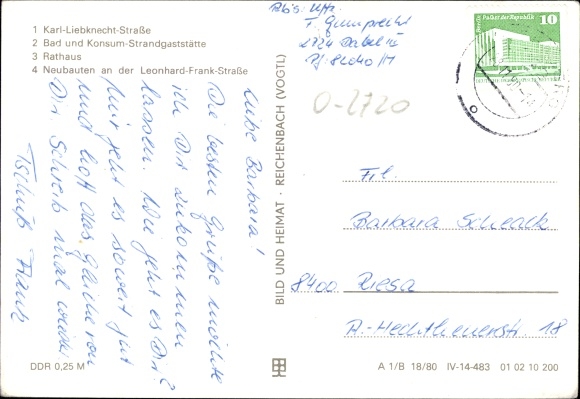 1 Karl-Liebknecht-Straße
2 Bad und Konsum-Strandgaststätte
3 Rathaus
4 Neubauten an der Leonhard-Frank-Straße
Liebe Barbara!
Die besten Grüße möchte
ich Dir zukommen
lassen. Wie geht es Dir?
Mir geht es soweit gut
und hoff das gleiche von
Dir. Schreib mal wieder
Tschüß Frank
DDR 0,25 M
BILD UND HEIMAT · REICHENBACH (VOGTL)
Abs. Uffz.
T.
2724 Dabel II
Pf: 82040/M
O-2720
Palast der Republik
10
Frl.
Barbara
8400 Riesa
18
A 1/B 18/80 IV-14-483 01 02 10 200